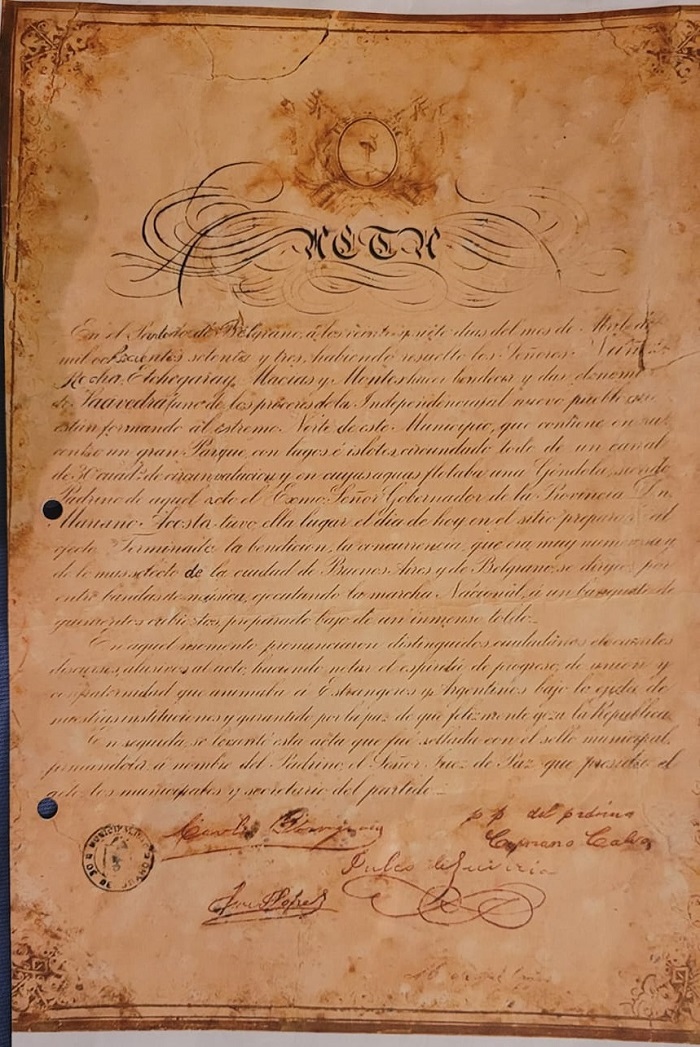 ACTA
En el Partido de Belgrano, á los veinte y siete dias del mes de Abril de
mil ochocientos setenta y tres, habiendo resuelto los Señores
Rocha, Etchegaray, Macias y Montes hacer bendecir y dar el nombre
de Saavedra (uno de los próceres de la Independencia) al nuevo pueblo que
están formando al estremo Norte de este Municipio, que contiene en su
centro un gran Parque, con lagos é islotes, circundado todo de un canal
de 30 cuads. de circunvalacion y en cuyas aguas flotaba una Góndola, siendo
Padrino de aquel acto el Exmo. Señor Gobernador de la Provincia Dn.
Mariano Acosta, tuvo ella lugar el dia de hoy en el sitio preparado al
efecto. Terminada la bendicion, la concurrencia, que era muy numerosa y
de lo mas selecto de la ciudad de Buenos Aires y de Belgrano, se dirigió por
entre bandas de música, ejecutando la marcha Nacional, á un banquete de
quinientos cubiertos, preparado bajo de un inmenso toldo.
En aquel momento pronunciaron distinguidos ciudadanos elocuentes
discursos, alusivos al acto, haciendo notar el espíritu de progreso, de union y
confraternidad que animaba á Estrangeros y Argentinos bajo la egida de
nuestras instituciones y garantido por la paz de que felizmente goza la República.
En seguida, se levantó esta acta que fué sellada con el sello municipal,
firmandola á nombre del Padrino, el Señor Juez de Paz que presidió el
acto, los municipales y secretario del partido.
p p del padrino
Carlos
Cipriano Calvo
Julio
José Lopez
MUNICIPALIDAD DE BELGRANO